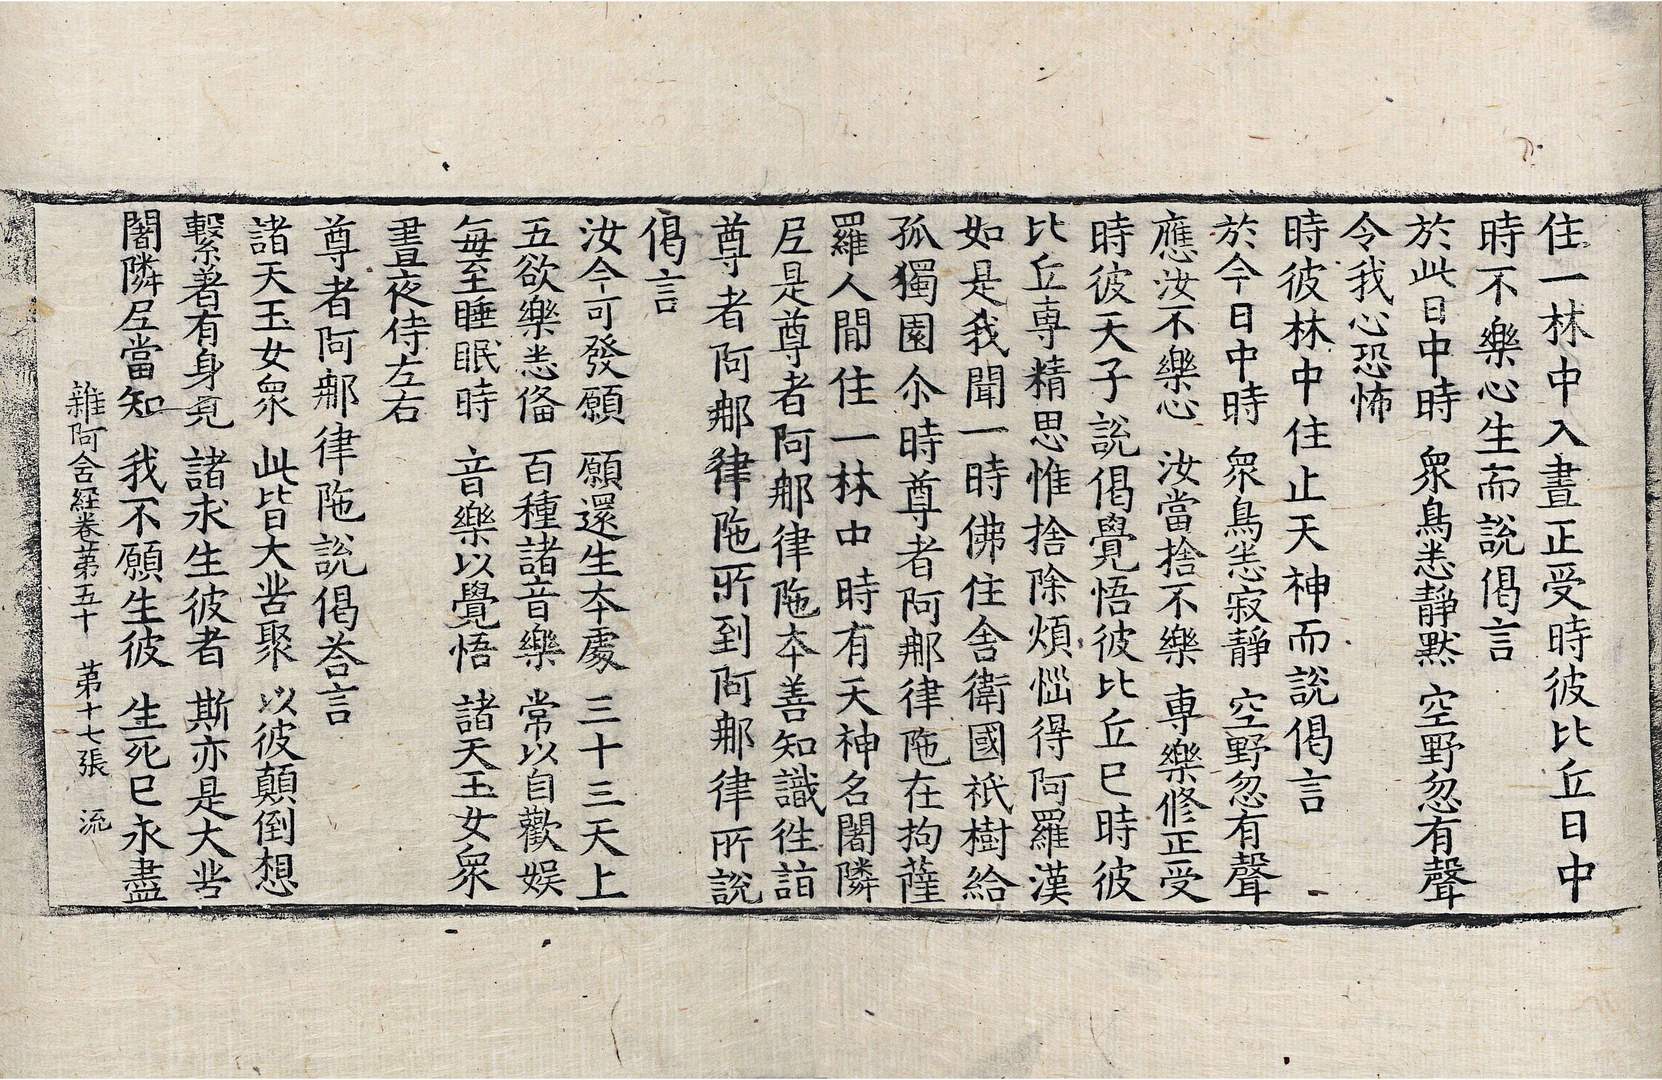 住一林中入晝正受時彼比丘日中
時不樂心生而說偈言
於此日中時 衆鳥悉靜默 空野忽有聲
令我心恐怖
時彼林中住止天神而說偈言
於今日中時 衆鳥悉寂靜 空野忽有聲
應汝不樂心 汝當捨不樂 專樂修正受
時彼天子說偈覺悟彼比丘已時彼
比丘專精思惟捨除煩惱得阿羅漢
如是我聞一時佛住舍衛國祇樹給
孤獨園尒時尊者阿那律陁在拘薩
羅人間住一林中時有天神名闍隣
尼是尊者阿那律陁本善知識往詣
尊者阿那律陁所到阿那律所說
偈言
汝今可發願 願還生本處 三十三天上
五欲樂悉俻 百種諸音樂 常以自歡娛
每至睡眠時 音樂以覺悟 諸天玉女衆
晝夜侍左右
尊者阿那律陁說偈荅言
諸天玉女衆 此皆大苦聚 以彼顛倒想
繫著有身見 諸求生彼者 斯亦是大苦
闍隣尼當知 我不願生彼 生死已永盡
雜阿含經卷第五十 第十七張 流